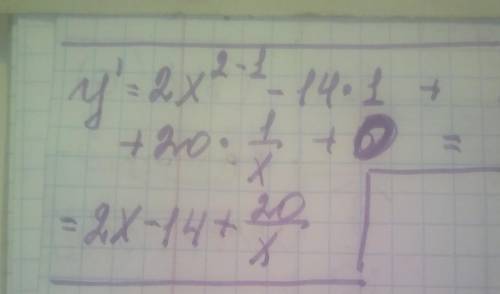 y' = 2x^{2-1} - 14·1 +
+ 20 · 1/x + 0 =
= 2x - 14 + 20/x